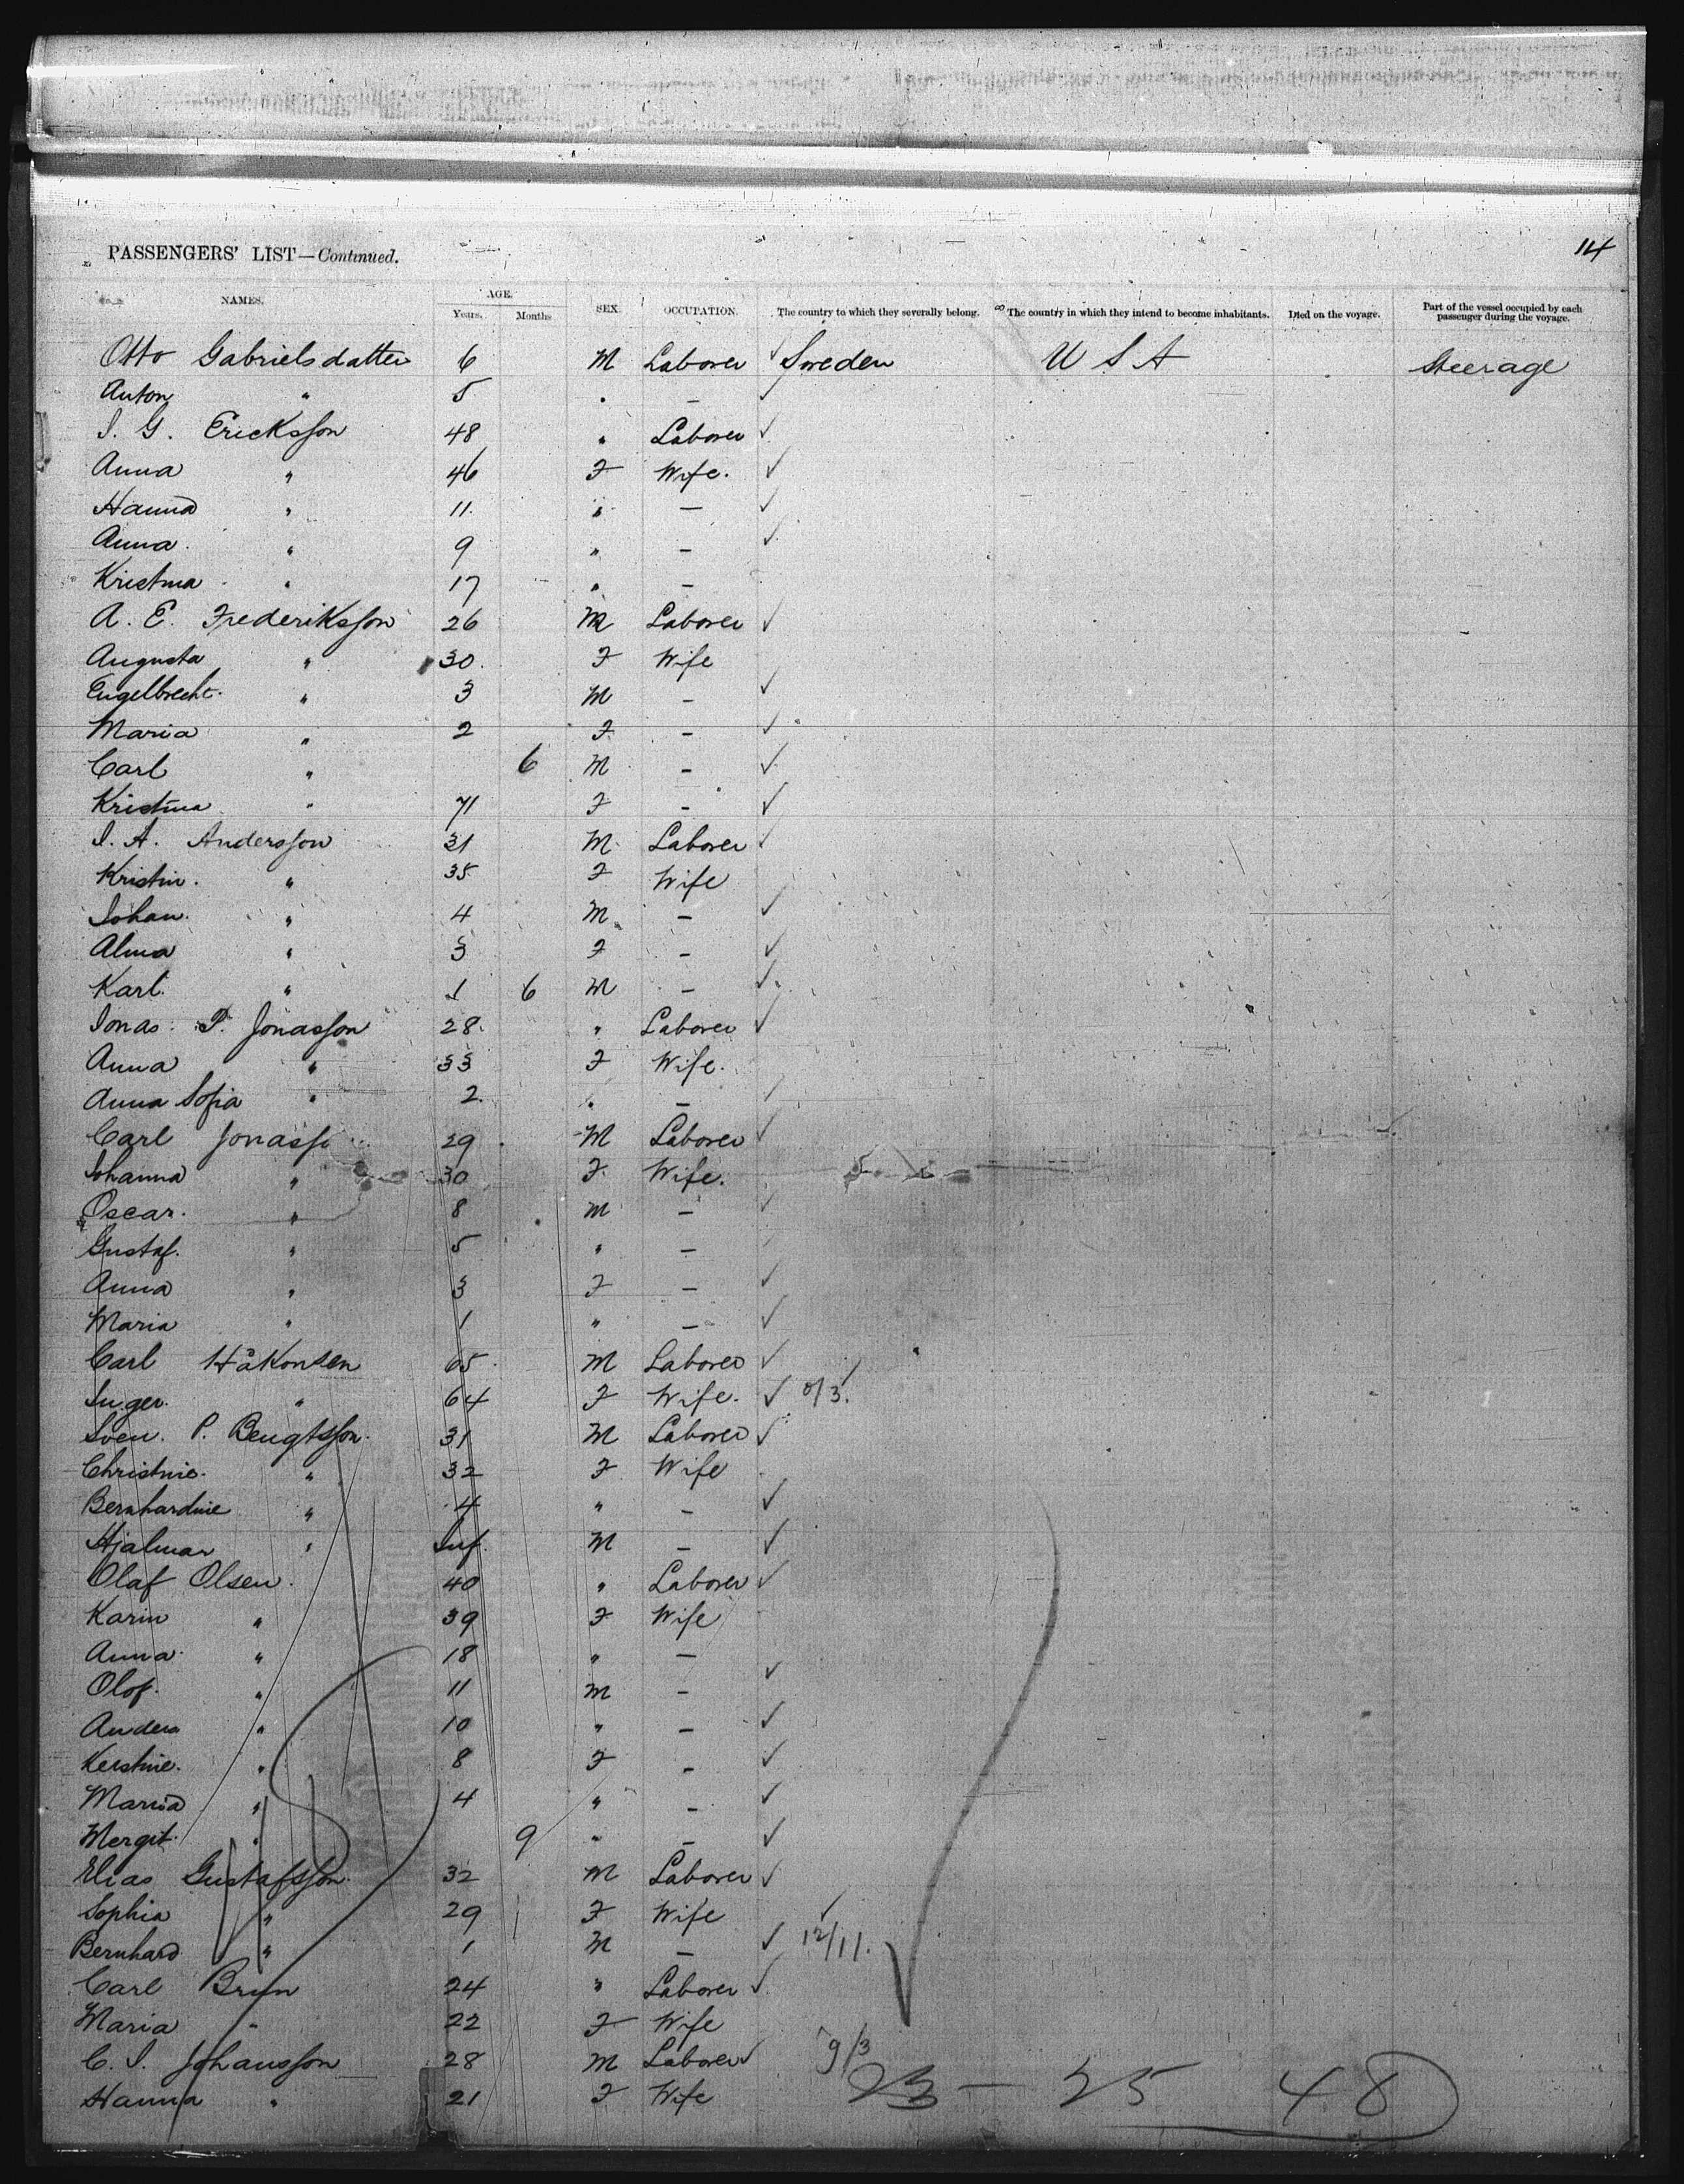 PASSENGERS' LIST—Continued.
14
NAMES. AGE. Years. Months SEX. OCCUPATION. The country to which they severally belong. The country in which they intend to become inhabitants. Died on the voyage. Part of the vessel occupied by each passenger during the voyage.
Otto Gabrielsdatter 6 M Laborer ✓ Sweden U S A Steerage
Anton " 5 " – ✓
I. G. Ericksson 48 " Laborer ✓
Anna " 46 F Wife. ✓
Hanna " 11 " – ✓
Anna " 9 " – ✓
Kristina " 17 " –
A. E. Frederiksson 26 M Laborer ✓
Augusta " 30 F Wife
Engelbrecht " 3 M – ✓
Maria " 2 F – ✓
Carl " 6 M – ✓
Kristina " 71 F – ✓
I. A. Andersson 31 M Laborer ✓
Kristin " 35 F Wife
Johan " 4 M – ✓
Alma " 3 F – ✓
Karl " 1 6 M – ✓
Jonas P. Jonasson 28 " Laborer ✓
Anna " 33 F Wife.
Anna Sofia " 2 " – ✓
Carl Jonass 29 M Laborer ✓
Johanna " 30 F Wife.
Oscar " 8 M – ✓
Gustaf " 5 " – ✓
Anna " 3 F – ✓
Maria " 1 " – ✓
Carl Håkonsen 65 M Laborer ✓
Inger " 64 F Wife. ✓
Sven P. Bengtsson 31 M Laborer ✓
Christine " 32 F Wife
Bernhardine " 4 " – ✓
Hjalmar " Inf. M – ✓
Olaf Olsen 40 " Laborer ✓
Karin " 39 F Wife
Anna " 18 " –
Olof " 11 M – ✓
Anders " 10 " – ✓
Kerstine " 8 F – ✓
Maria " 4 " – ✓
Mergit " 9 " – ✓
Elias Gustafsson 32 M Laborer ✓
Sophia " 29 F Wife ✓
Bernhard " 1 M – ✓ 12/11.
Carl Brun 24 " Laborer ✓
Maria " 22 F Wife
C. I. Johansson 28 M Laborer ✓ 9/3
Hanna " 21 F Wife 23 – 25 48